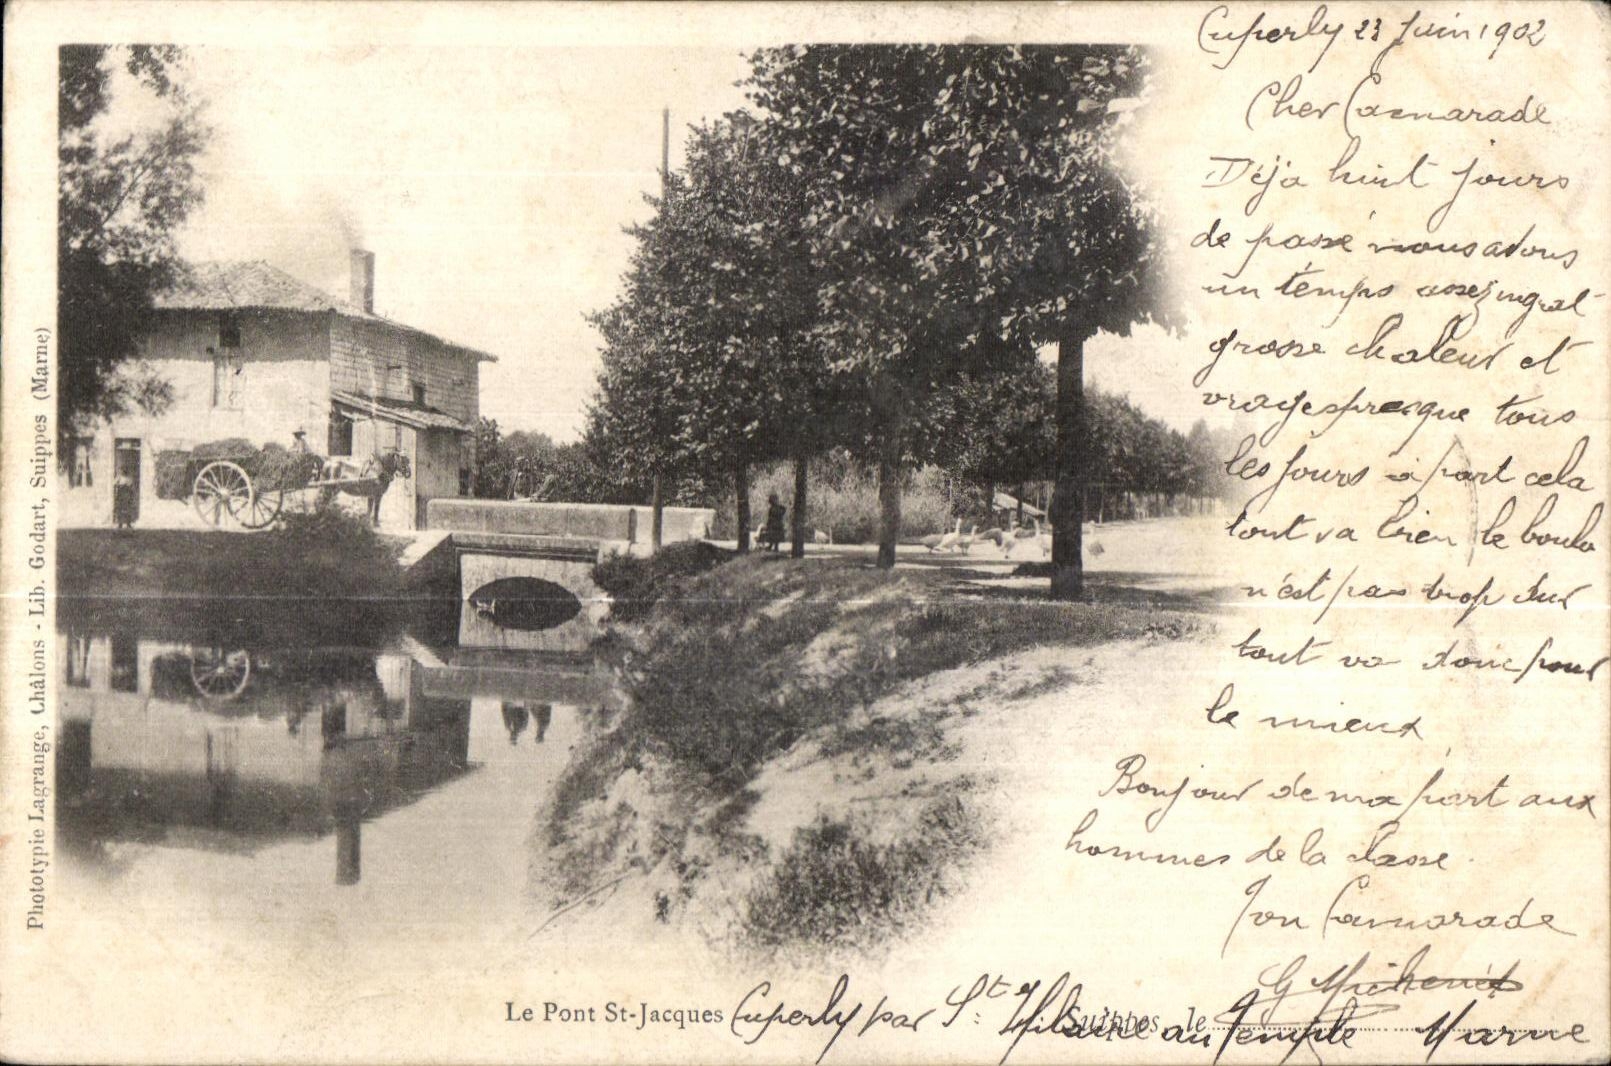 Cuperly 23 Juin 1902
Cher Camarade
Déjà huit jours
de passé nous avons
un temps assez ingrat
grosse chaleur et
orages presque tous
les jours à part cela
tout va bien le boulo
n'est pas trop dur
tout va donc pour
le mieux
Bonjour de ma part aux
hommes de la classe.
Ton Camarade
G
Phototypie Lagrange, Châlons - Lib. Godart, Suippes (Marne)
Le Pont St-Jacques
Suippes, le
Cuperly par St Hilaire au Temple Marne